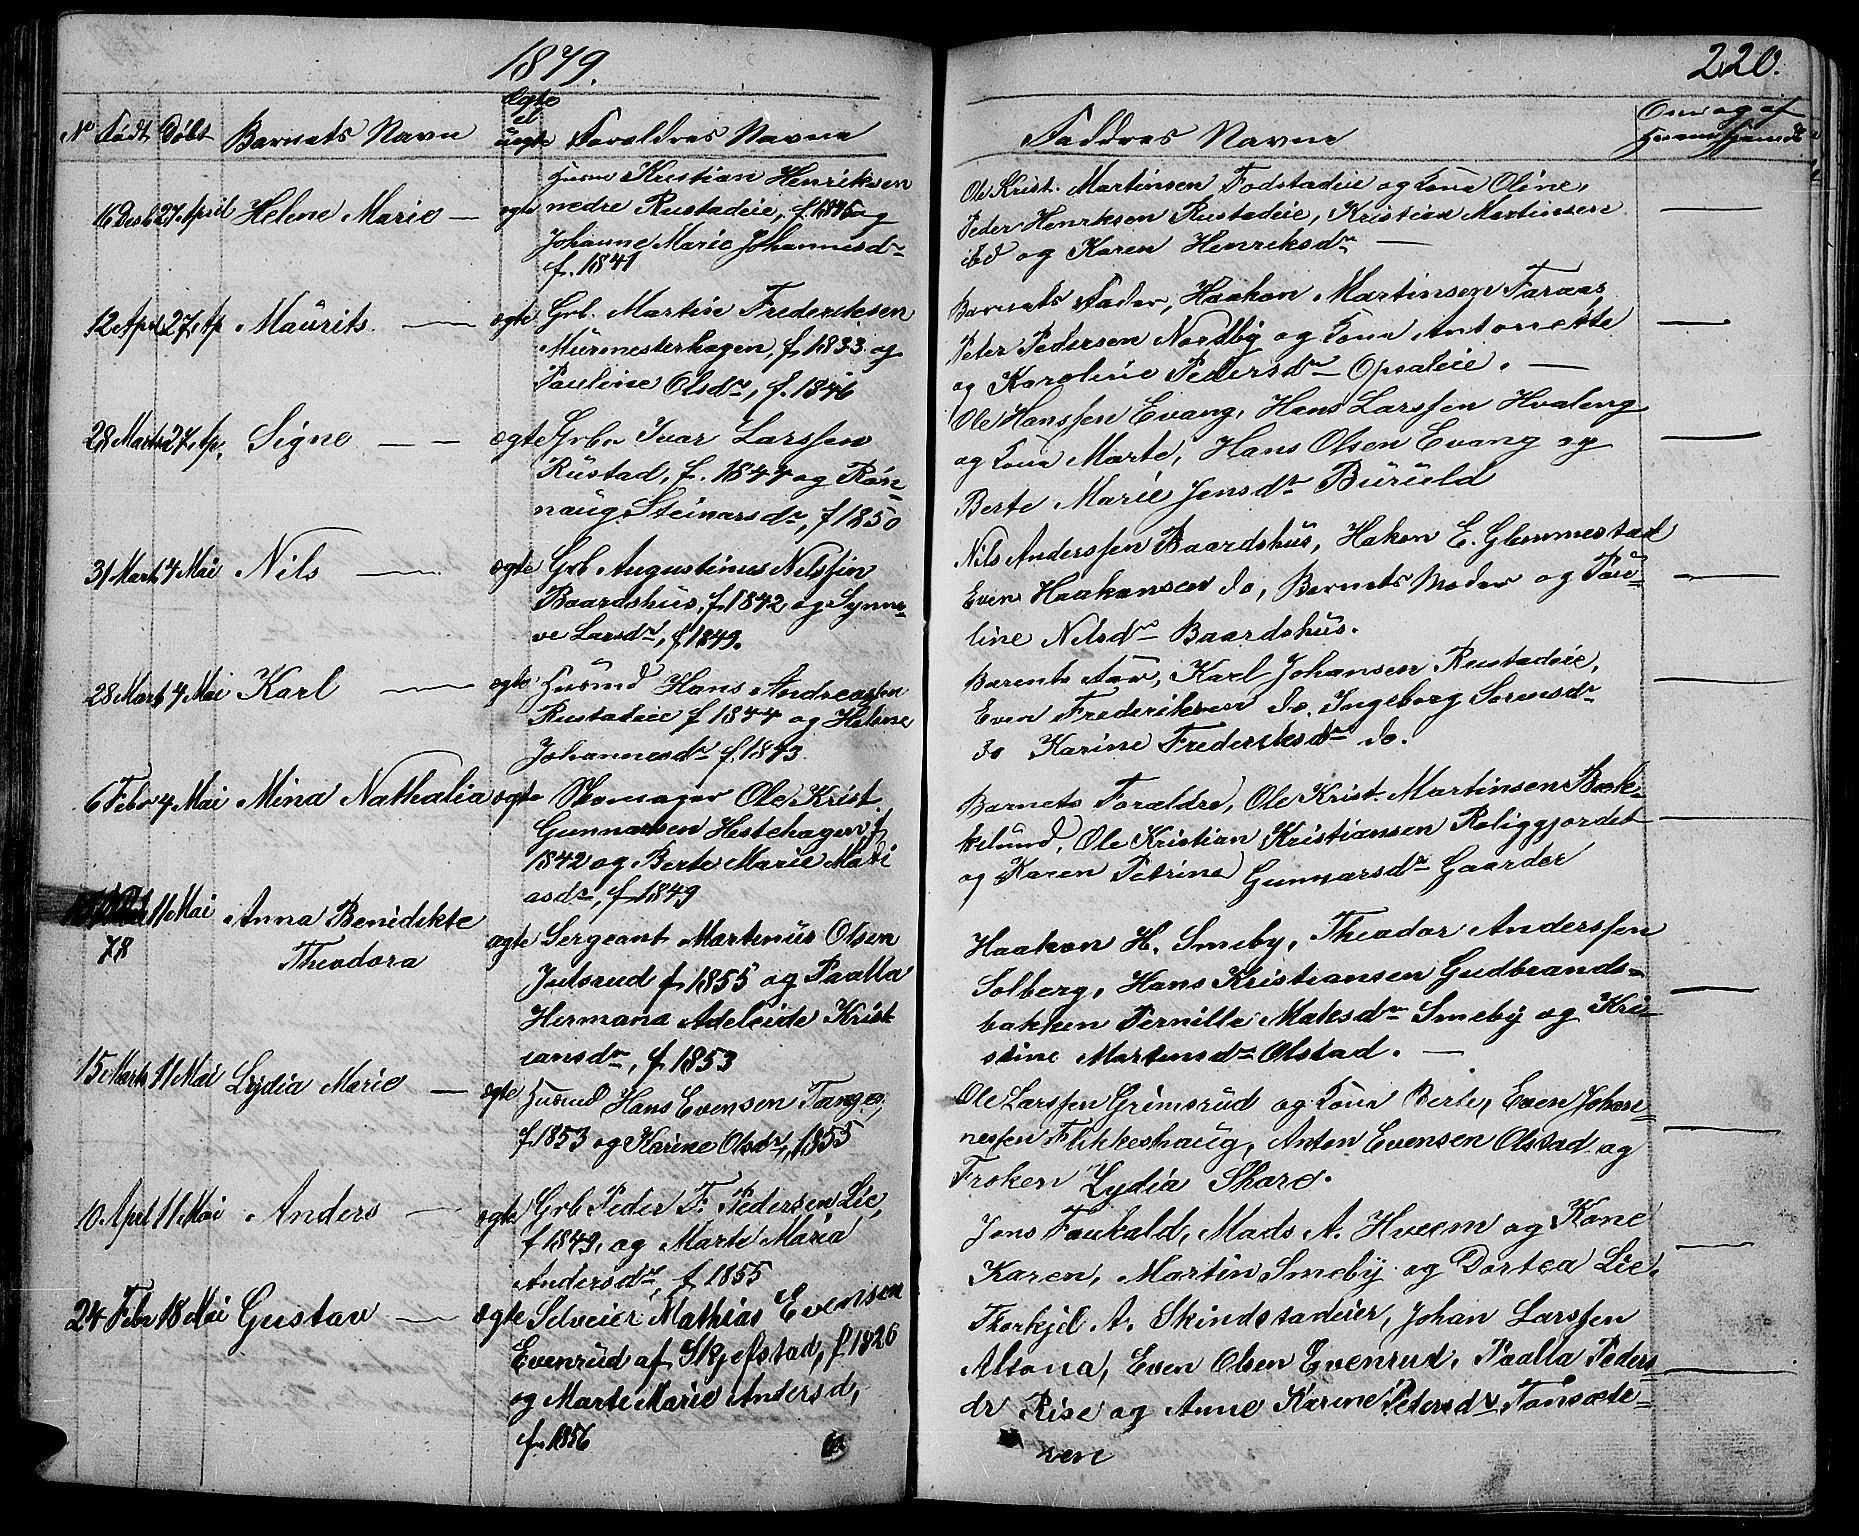 1879.
220.
No Født Døbt Barnets Navn Ægte el uægte Forældres Navne
Faddres Navne Om og af hvem hjemdt
16 Decb 27 April Helene Marie — ægte Husm Kristian Henriksen
nedre Rustadeie, f. 1845 og
Johanne Marie Johannesdr
f. 1841
Ole Krist. Martinsen Fodstadeie og Kone Oline,
Peder Henriksen Rustadeie, Kristian Martinsen
ibd og Karen Henriksdr —
12 April 27 Ap Maurits. — ægte Grb. Martin Frederiksen
Murmesterhagen, f. 1833 og
Pauline Olsdr, f. 1846
Barnets Fader, Haakon Martinsen Faraas
Peter Pedersen Nordby og Kone Antonette
og Karoline Pedersdr Opsaleie. —
28 Marts 27 Ap. Signe — — ægte Grbr Ivar Larssen
Rustad, f. 1844 og Røn-
naug Steinarsdr, f 1850
Ole Hanssen Evang, Hans Larssen Hvaleng
og Kone Marte, Hans Olsen Evang og
Berte Marie Jensdr Buruld
31 Marts 4 Mai Nils — ægte Grb Augustinus Nilssen
Baardshus, f. 1842 og Synnø-
ve Larsdr, f 1849.
Nils Anderssen Baardshus, Haken E. Glemmestad
Even Haakensen do, Barnets Moder og Pau-
line Nilsdr Baardshus.
28 Marts 4 Mai Karl — ægte Husmd Hans Andreassen
Rustadeie f 1844 og Helene
Johannesdr f. 1843
Barents Far, Karl Johansen Rustadeie,
Even Frederiksen do. Ingeborg Sørensdr
do Karine Frederiksdr do.
6 Febr 4 Mai Mina Nathalia ægte Skomager Ole Krist.
Gunnarsen Hestehagen, f
1842 og Berte Marie Mati
asdr, f. 1849
Barnets Forældre, Ole Krist. Martinsen Bæk-
kelund, Ole Kristian Kristiansen Roliggjordet
og Karen Petrine Gunnarsdr Gaarder
11 Mai Anna Benedikte ægte Sergeant Martinus Olsen
78 Theodora
Julsrud f 1855 og Paalla
Hermana Adeleide Krist
iansdr, f. 1853
Haakon H. Smeby, Theodor Anderssen
Solberg, Hans Kristiansen Gudbrands-
bakken Pernille Maksdr Smeby og Kri-
stine Martinsdr Olstad. —
15 Marts 11 Mai Lydia Marie — ægte Husmd Hans Evensen Tanger,
f. 1853 og Karine Olsdr, 1855
Ole Larssen Grimsrud og Kone Berte, Even Johan-
nessen Flikkeshaug, Anton Evensen Olstad og
Frøken Lydia Skard.
10 April 11 Mai Anders — ægte Grb Peder F. Pedersen Lie,
f 1849, og Marte Maria
Andersdr, f. 1855
Jens Faukald, Mads A. Hveem og Kone
Karen, Martin Smeby og Dortea Lie.
24 Febr 18 Mai Gustav — ægte Selveier Mathias Evensen
Evenrud af Skjefstad, f 1826
og Marte Marie Andersd,
f. 1856
Thorkjel A. Skindstadeier, Johan Larssen
Alsona, Even Olsen Evenrud, Paalla Peders
dr Rise og Anne Karine Petersdr Tønsæte-
ren